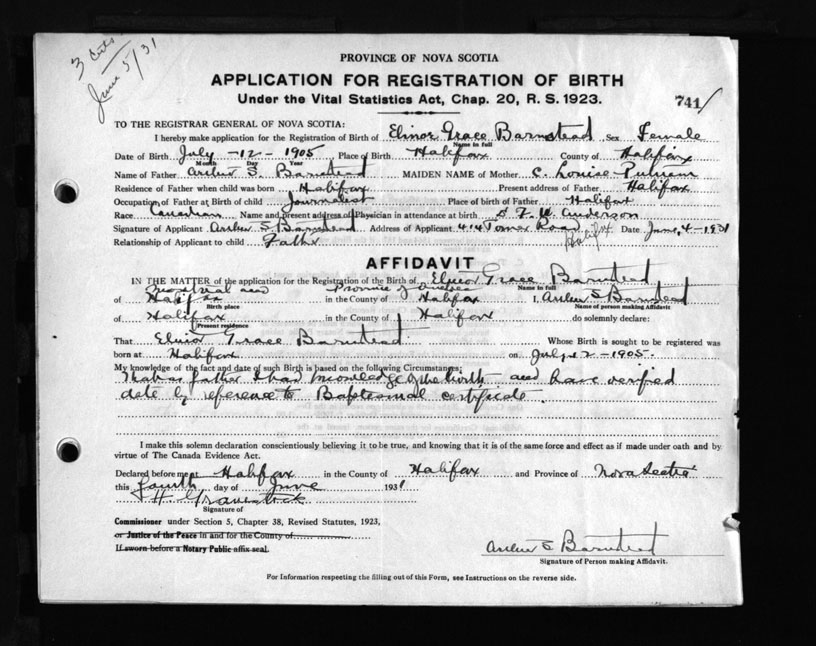 3 Certs.
June 5/31
PROVINCE OF NOVA SCOTIA
APPLICATION FOR REGISTRATION OF BIRTH
Under the Vital Statistics Act, Chap. 20, R. S. 1923.
741
TO THE REGISTRAR GENERAL OF NOVA SCOTIA:
I hereby make application for the Registration of Birth of Elinor Grace Barnstead Sex Female
Name in full
Date of Birth July -12- 1905 Place of Birth Halifax County of Halifax
Month Day Year
Name of Father Arthur S. Barnstead MAIDEN NAME of Mother C. Louise Putnam
Residence of Father when child was born Halifax Present address of Father Halifax
Occupation of Father at Birth of child Journalist Place of birth of Father Halifax
Race Canadian Name and present address of Physician in attendance at birth Anderson
Signature of Applicant Arthur S. Barnstead Address of Applicant 414 Tower Road Halifx Date June, 4-1931
Relationship of Applicant to child Father
AFFIDAVIT
IN THE MATTER of the application for the Registration of the Birth of Elinor Grace Barnstead
Name in full
Montreal and Province of Quebec
of Halifax in the County of Halifax I, Arthur S Barnstead
Birth place Name of person making Affidavit
of Halifax in the County of Halifax do solemnly declare:
Present residence
That Elinor Grace Barnstead Whose Birth is sought to be registered was
born at Halifax on July 12-1905.
My knowledge of the fact and date of such Birth is based on the following Circumstances:
That as father I had knowledge of the birth and have verified
date by reference to Baptismal certificate.
I make this solemn declaration conscientiously believing it to be true, and knowing that it is of the same force and effect as if made under oath and by
virtue of The Canada Evidence Act.
Declared before me at Halifax in the County of Halifax and Province of Nova Scotia
this fourth day of June 1931
H.
Signature of
Commissioner under Section 5, Chapter 38, Revised Statutes, 1923,
or Justice of the Peace in and for the County of
If sworn before a Notary Public affix seal.
Arthur S Barnstead
Signature of Person making Affidavit.
For Information respecting the filling out of this Form, see Instructions on the reverse side.